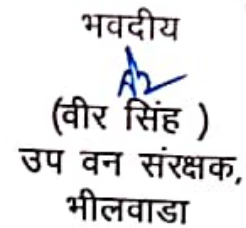 भवदीय
(वीर सिंह )
उप वन संरक्षक,
भीलवाडा